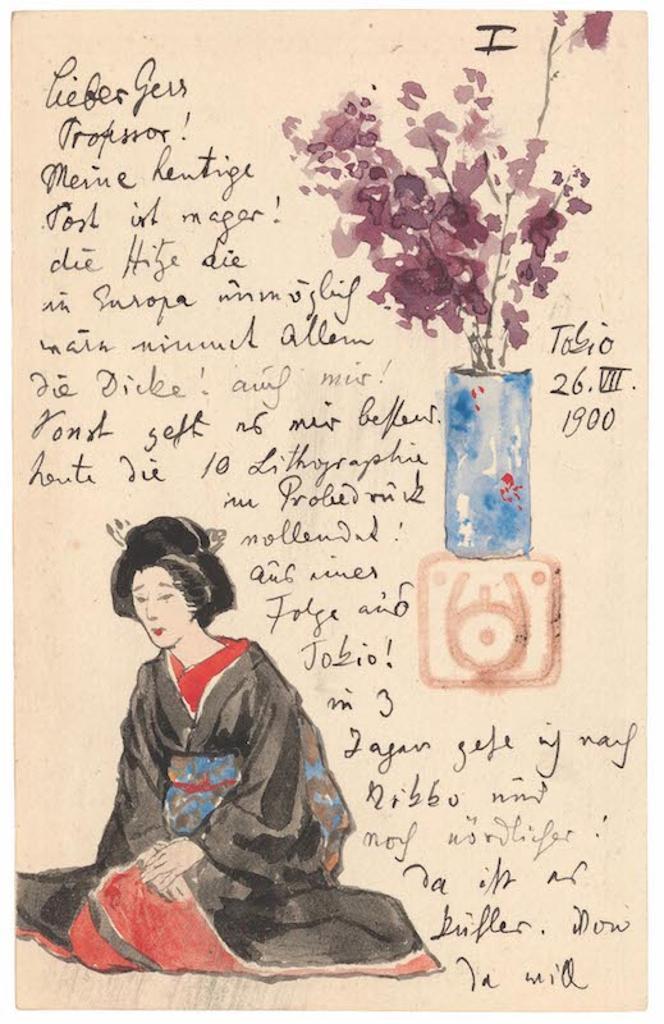 I
Lieber Herr
Professor!
Meine heutige
Post ist mager!
die Hitze die
in Europa unmöglich
wäre nimmt Allem
die Dicke! auch mir!
Sonst geht es mir besser.
heute die 10 Lithographie
im Probedruck
vollendet!
aus einer
Folge aus
Tokio!
in 3
Tagen gehe ich nach
Nikko und
noch nördlicher!
da ist es
kühler. Von
da will
Tokio
26. VII.
1900